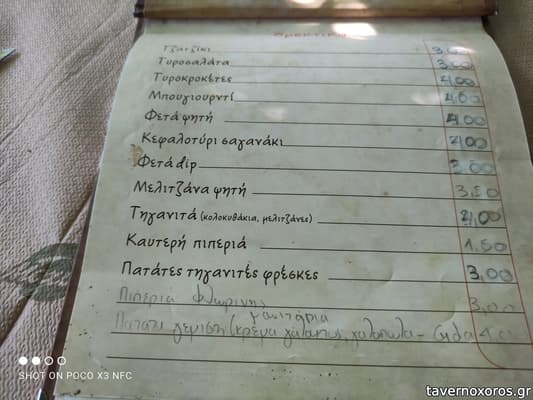 Ορεκτικά
Τζατζίκι 3,00
Τυροσαλάτα 3,00
Τυροκροκέτες 4,00
Μπουγιουρντί 4,00
Φετά ψητή 4,00
Κεφαλοτύρι σαγανάκι 4,00
Φετά dip
Μελιτζάνα ψητή 3,50
Τηγανιτά (κολοκυθάκια, μελιτζάνες) 4,00
Καυτερή πιπεριά 1,50
Πατάτες τηγανιτές φρέσκες 3,00
Πιπεριά Φλωρίνης 3,00
μανιτάρια
Πατάτα γεμιστή (κρέμα γάλακτος,
SHOT ON POCO X3 NFC
tavernoxoros.gr